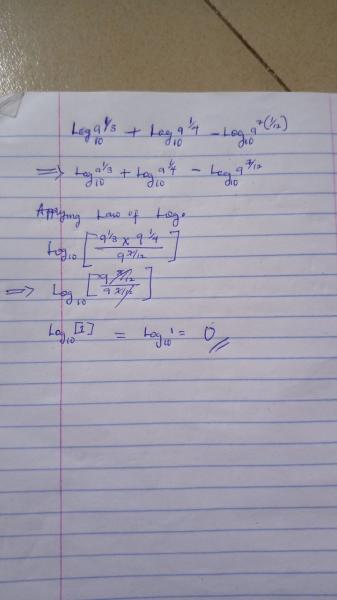 Log₁₀ 9^1/3 + Log₁₀ 9^1/4 − Log₁₀ 9^7(1/12)
⇒ Log₁₀ 9^1/3 + Log₁₀ 9^1/4 − Log₁₀ 9^7/12
Applying Law of Log.
Log₁₀ [ (9^1/3 × 9^1/4) / 9^7/12 ]
⇒ Log₁₀ [ 9^7/12 / 9^7/12 ]
Log₁₀ [1] = Log₁₀ 1 = 0